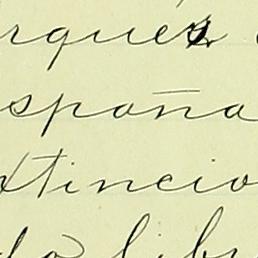 rques
spaña
xtincio
do libr